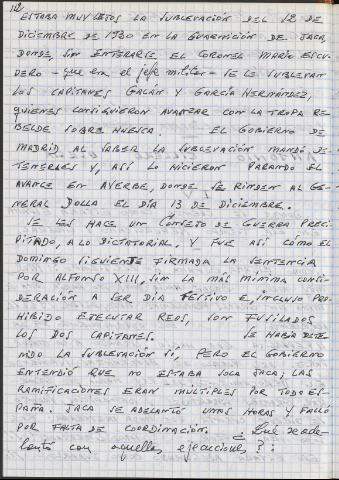 112
ESTABA MUY LEJOS LA SUBLEVACIÓN DEL 12 DE
DICIEMBRE DE 1930 EN LA GUARNICIÓN DE JACA,
DONDE, SIN ENTERARSE EL CORONEL MARIO ESCU-
DERO - que era el jefe militar - SE LE SUBLEVAN
LOS CAPITANES GALÁN Y GARCÍA HERNÁNDEZ,
QUIENES CONSIGUIERON AVANZAR CON LA TROPA RE-
BELDE SOBRE HUESCA. EL GOBIERNO DE
MADRID AL SABER LA SUBLEVACIÓN MANDÓ DE-
TENERLES Y, ASÍ LO HICIERON PARANDO EL
AVANCE EN AYERBE, DONDE SE RINDEN AL GE-
NERAL DOLLA EL DÍA 13 DE DICIEMBRE.
SE LES HACE UN CONSEJO DE GUERRA PRECI-
PITADO, A LO DICTATORIAL, Y FUE ASÍ COMO EL
DOMINGO SIGUIENTE FIRMADA LA SENTENCIA
POR ALFONSO XIII, SIN LA MÁS MÍNIMA CONSI-
DERACIÓN A SER DÍA FESTIVO E, INCLUSO PRO-
HIBIDO EJECUTAR REOS, SON FUSILADOS
LOS DOS CAPITANES. SE HABÍA DETE-
NIDO LA SUBLEVACIÓN SÍ, PERO EL GOBIERNO
ENTENDIÓ QUE NO ESTABA SOLA JACA; LAS
RAMIFICACIONES ERAN MÚLTIPLES POR TODO ES-
PAÑA. JACA SE ADELANTÓ UNAS HORAS Y FALLÓ
POR FALTA DE COORDINACIÓN. ¿Qué se ade-
lantó con aquellas ejecuciones?: